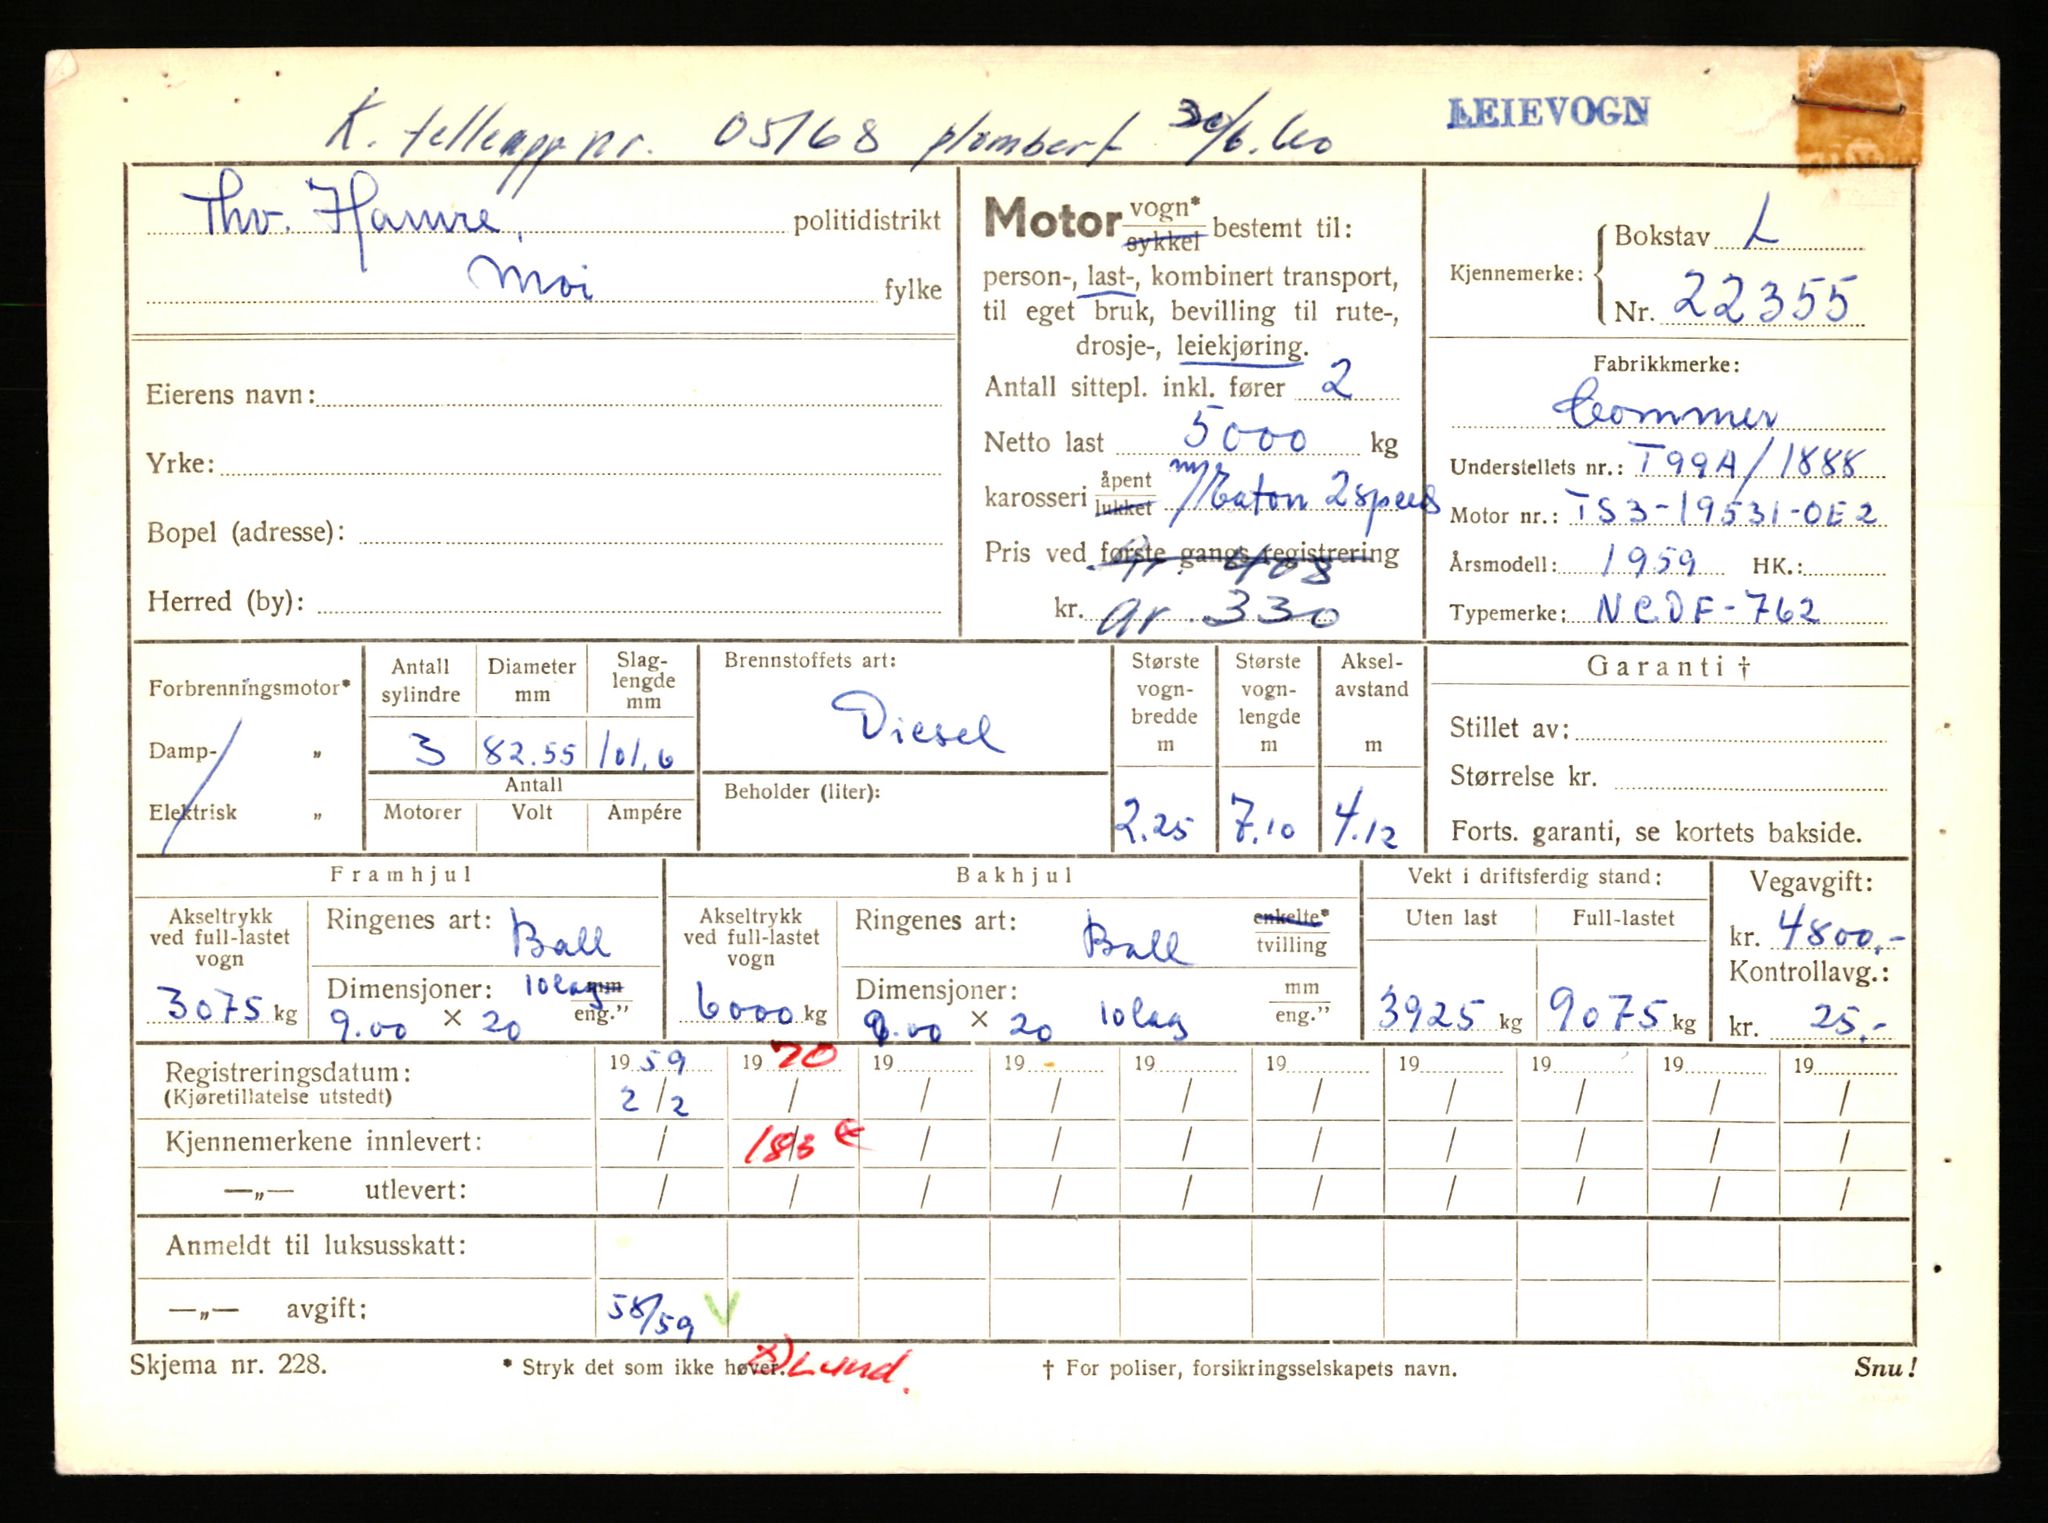 LEIEVOGN
K. telleapp nr. 05168 plombert 30/6.60
Thv. Hamre, politidistrikt
Moi fylke
Eierens navn:
Yrke:
Bopel (adresse):
Herred (by):
Motor vogn* sykkel bestemt til:
person-, last-, kombinert transport,
til eget bruk, bevilling til rute-,
drosje-, leiekjøring.
Antall sittepl. inkl. fører 2
Netto last 5000 kg
karosseri åpent lukket m/Eaton 2 speed
Pris ved første gangs registrering
gr. 408
kr. gr. 330
Kjennemerke: Bokstav L
Nr. 22355
Fabrikkmerke:
Commer
Understellets nr.: T99A/1888
Motor nr.: TS3-19531-OE2
Årsmodell: 1959 HK.:
Typemerke: NCDF-762
Forbrenningsmotor*
Damp- "
Elektrisk "
Antall sylindre Diameter mm Slag-lengde mm
3 82.55 101,6
Antall
Motorer Volt Ampére
Brennstoffets art:
Diesel
Beholder (liter):
Største vogn-bredde m Største vogn-lengde m Aksel-avstand m
2.25 7.10 4.12
Garanti †
Stillet av:
Størrelse kr.
Forts. garanti, se kortets bakside.
Framhjul
Akseltrykk ved full-lastet vogn
3075 kg
Ringenes art: Ball
Dimensjoner: 10 lag mm eng."
9.00 × 20
Bakhjul
Akseltrykk ved full-lastet vogn
6000 kg
Ringenes art: Ball enkelte* tvilling
Dimensjoner: mm eng."
9.00 × 20 10 lag
Vekt i driftsferdig stand:
Uten last Full-lastet
3925 kg 9075 kg
Vegavgift:
kr. 4800,-
Kontrollavg.:
kr. 25,-
Registreringsdatum: 1959 1970 19 19 19 19 19 19 19 19
(Kjøretillatelse utstedt) 2/2 / / / / / / / / /
Kjennemerkene innlevert: / 18/3 / / / / / / / /
—„— utlevert: / / / / / / / / / /
Anmeldt til luksusskatt:
—„— avgift: 58/59 V
Skjema nr. 228. * Stryk det som ikke høver. Lund. † For poliser, forsikringsselskapets navn. Snu!